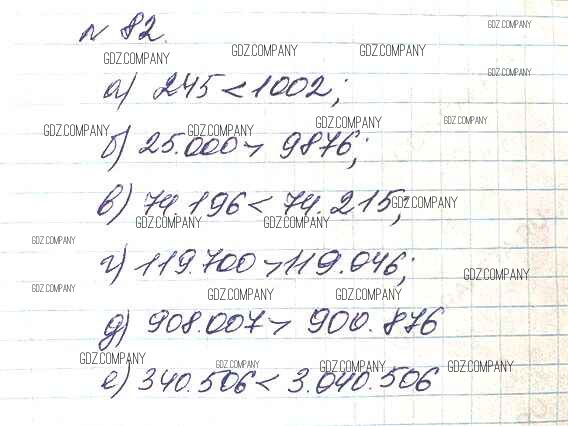 N 82.
GDZ.COMPANY
GDZ.COMPANY GDZ.COMPANY GDZ.COMPANY
а) 245 < 1002;
GDZ.COMPANY
GDZ.COMPANY GDZ.COMPANY GDZ.COMPANY GDZ.COMPANY
б) 25.000 > 9876;
в) 74.196 < 74.215;
GDZ.COMPANY
GDZ.COMPANY GDZ.COMPANY
GDZ.COMPANY
г) 119.700 > 119.046;
GDZ.COMPANY
GDZ.COMPANY GDZ.COMPANY GDZ.COMPANY
д) 908.007 > 900.876
GDZ.COMPANY GDZ.COMPANY GDZ.COMPANY GDZ.COMPANY
е) 340.506 < 3.040.506